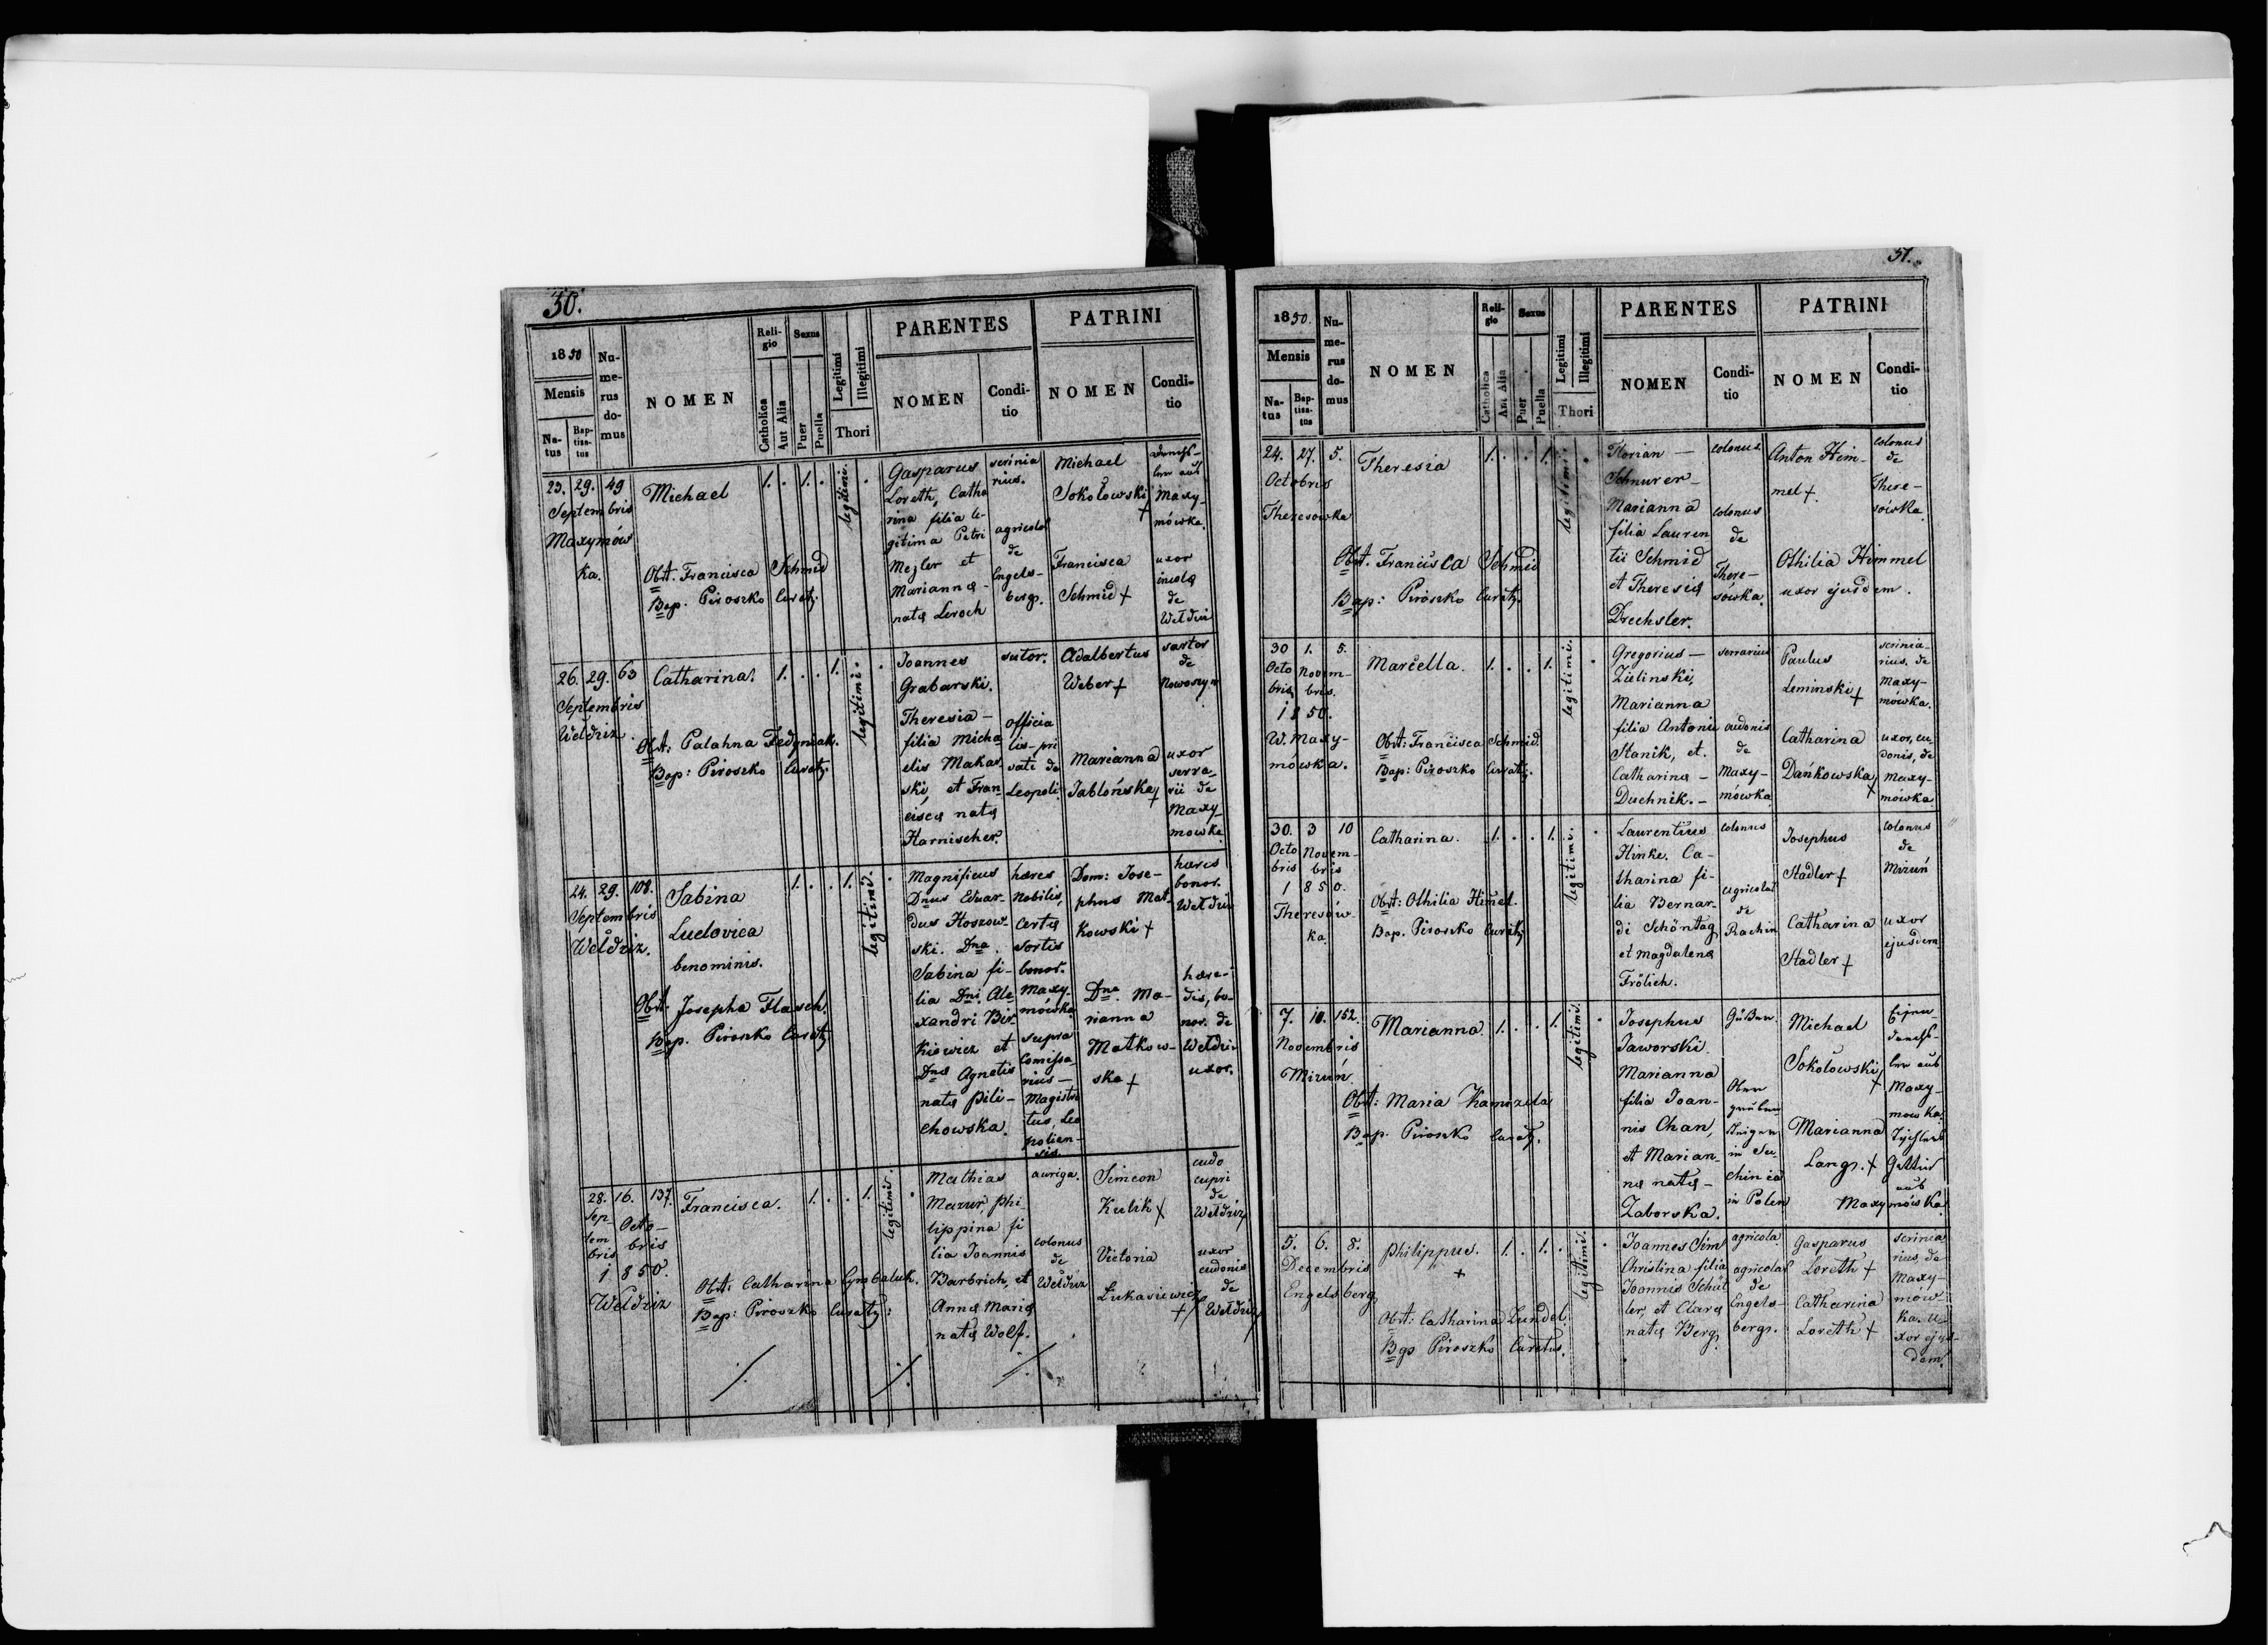 30.
1850
Mensis
Na-
tus
Bap-
tisa-
tus
Nu-
me-
rus
do-
mus
NOMEN
Reli-
gio
Catholica
Aut Alia
Sexus
Puer
Puella
Legitimi
Illegitimi
Thori
PARENTES
NOMEN
Condi-
tio
PATRINI
NOMEN
Condi-
tio
23. 29. 49
Septembris
Maxymów
ka.
Michael
Obst. Francisca Schmid
Bap. Piroszko Curatq.
1. . 1. .
legitimi.
Gasparus
Loreth, Catha
rina filia le-
gitima Petri
Mezler et
Marianna -
nata Leroch
scrinia
rius.
agricola
de
Engels-
berg.
Michael
Sokołowski
+
Francisca
Schmid +
Maxy-
mówka.
uxor
incola
de
Wełdzi
26. 29. 63
Septembris
Wełdziz.
Catharina.
Obst: Palahna Fedyniak.
Bap: Piroszko Curatq.
1. . . 1.
legitimi.
Joannes
Grabarski.
Theresia -
filia Micha
elis Makar
ski, et Fran-
cisca nata
Harnischer.
sutor.
officia
lis pri
vati de
Leopoli.
Adalbertus
Weber +
Marianna
Jabłońska +
sartor
de
uxor
serra-
rii de
Maxy-
mówka
24. 29. 108.
Septembris
Wełdziz.
Sabina
Ludovica
benominis.
Obst. Josepha Flasch.
Bap. Piroszko Curatq
1. . . 1.
legitimi.
Magnificus
Dnus Eduar-
dus Hoszow-
ski. Dna
Sabina fi-
lia Dni Ale-
xandri Bir-
kiewicz et
Dna Agnetis
nata Pili-
chowska.
hæres
Nobilis,
Certa
Sortis
bonor.
Maxy-
mówka
supra
Comissa-
rius -
Magistra
tus, Leo
polien-
sis.
Dom: Jose-
phus Mat-
kowski +
Dna. Ma-
rianna
Matkow-
ska +
hæres
bonor.
Wełdziz
hære-
dis, bo-
nor. de
Wełdziz
uxor.
28. 16. 137.
Sep- Octo-
tem bris
bris
1850.
Wełdziz
Francisca.
Obst: Catharina Gynbaluk.
Bap: Piroszko Curatq:
1. . . 1.
legitimi.
Mathias
Mazur, Phi-
lippina fi
lia Joannis
Barbrich, et
Anna Maria
nata Wolf.
auriga.
colonus
de
Wełdziz
Simeon
Kulik +
Victoria
Łukasiewicz
+
cudo
cupri
de
Wełdziz
uxor
cudonis
de
Wełdziz
51.
1850.
Mensis
Na-
tus
Bap-
tisa-
tus
Nu-
me-
rus
do-
mus
NOMEN
Reli-
gio
Catholica
Aut Alia
Sexus
Puer
Puella
Legitimi
Illegitimi
Thori
PARENTES
NOMEN
Condi-
tio
PATRINI
NOMEN
Condi-
tio
24. 27. 5.
Octobris
Theresowka
Theresia
Obst. Francisca Schmid
Bap: Piroszko Curatq.
1. . . 1.
legitimi.
Florian -
Schnurer -
Marianna
filia Lauren
tii Schmid
et Theresia
Drechsler.
colonus.
colonus
de
There-
sówka.
Anton Him-
mel +.
Othilia Himmel
uxor ejusdem.
colonus
de
There-
sówka.
30 1. 5.
Octo Novem-
bris, bris.
1850.
W. Maxy-
mówka.
Marcella.
Obst: Francisca Schmid.
Bap: Piroszko Curatq.
1. . . 1.
legitimi.
Gregorius -
Zielinski,
Marianna
filia Antonii
Stanik, et.
Catharina -
Duchnik. -
serrarius
cudonis
de
Maxy-
mówka
Paulus
Leminski +
Catharina
Dańkowska
+
scrinia-
rius, de
Maxy-
mówka.
uxor, cu
donis, de
Maxy-
mówka
30. 3 10
Octo Novem-
bris bris
1850.
Theresów-
ka
Catharina.
Obst: Othilia Himel.
Bap. Piroszko Curatq
1. . . 1.
legitimi.
Laurentius
Hinke. Ca-
tharina fi-
lia Bernar-
di Schöntag
et Magdalena
Frölich.
colonus
agricola
de
Rachin
Josephus
Stadler +
Catharina
Stadler +
colonus
de
Mizuń
uxor
ejusdem.
7. 10. 152.
Novembris
Mizuń.
Marianna
Obst: Maria Kamizela
Bap. Piroszko Curatq.
1. . . 1.
legitimi.
Josephus
Jaworski.
Marianna
filia Joan-
nis Chan,
et Marian-
na nata -
Zaborska.
in Su
chinia
in Polen
Michael
Sokołowski
+
Marianna
Lang. +
Maxy-
mowka.
Maxymówka.
5. 6. 8.
Decembris
Engelsberg.
Philippus.
+
Obst: Catharina Zundel.
Bap Piroszko Curatus.
1. . 1. .
legitimi.
Joannes Sim
Christina filia
Joannis Schüt
ler, et Clara
nata Berg.
agricola.
agricola
de
Engels-
berg.
Gasparus
Loreth +
Catharina
Loreth +
scrinia
rius, de
Maxy-
mów-
ka. u-
xor ejus-
dem.